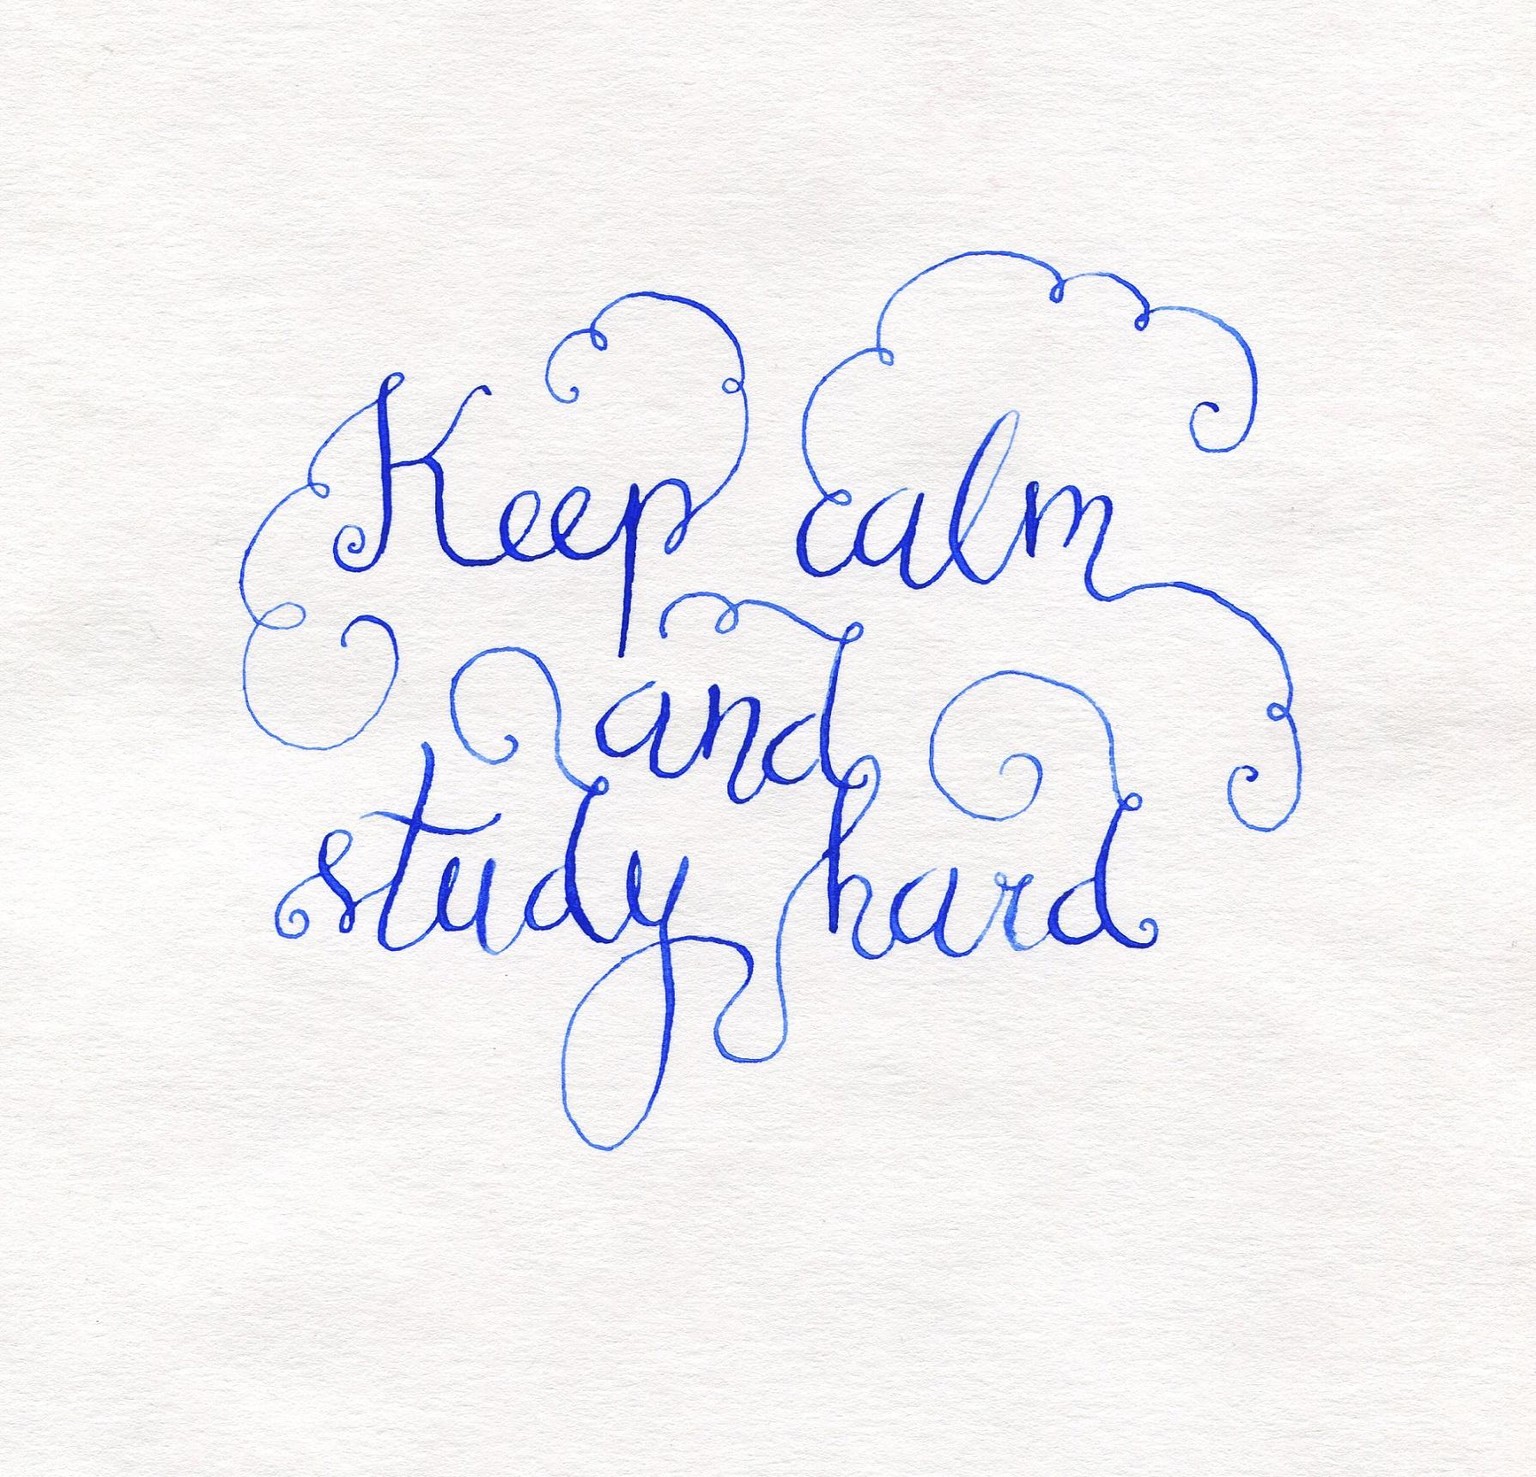 Keep calm
and
study hard